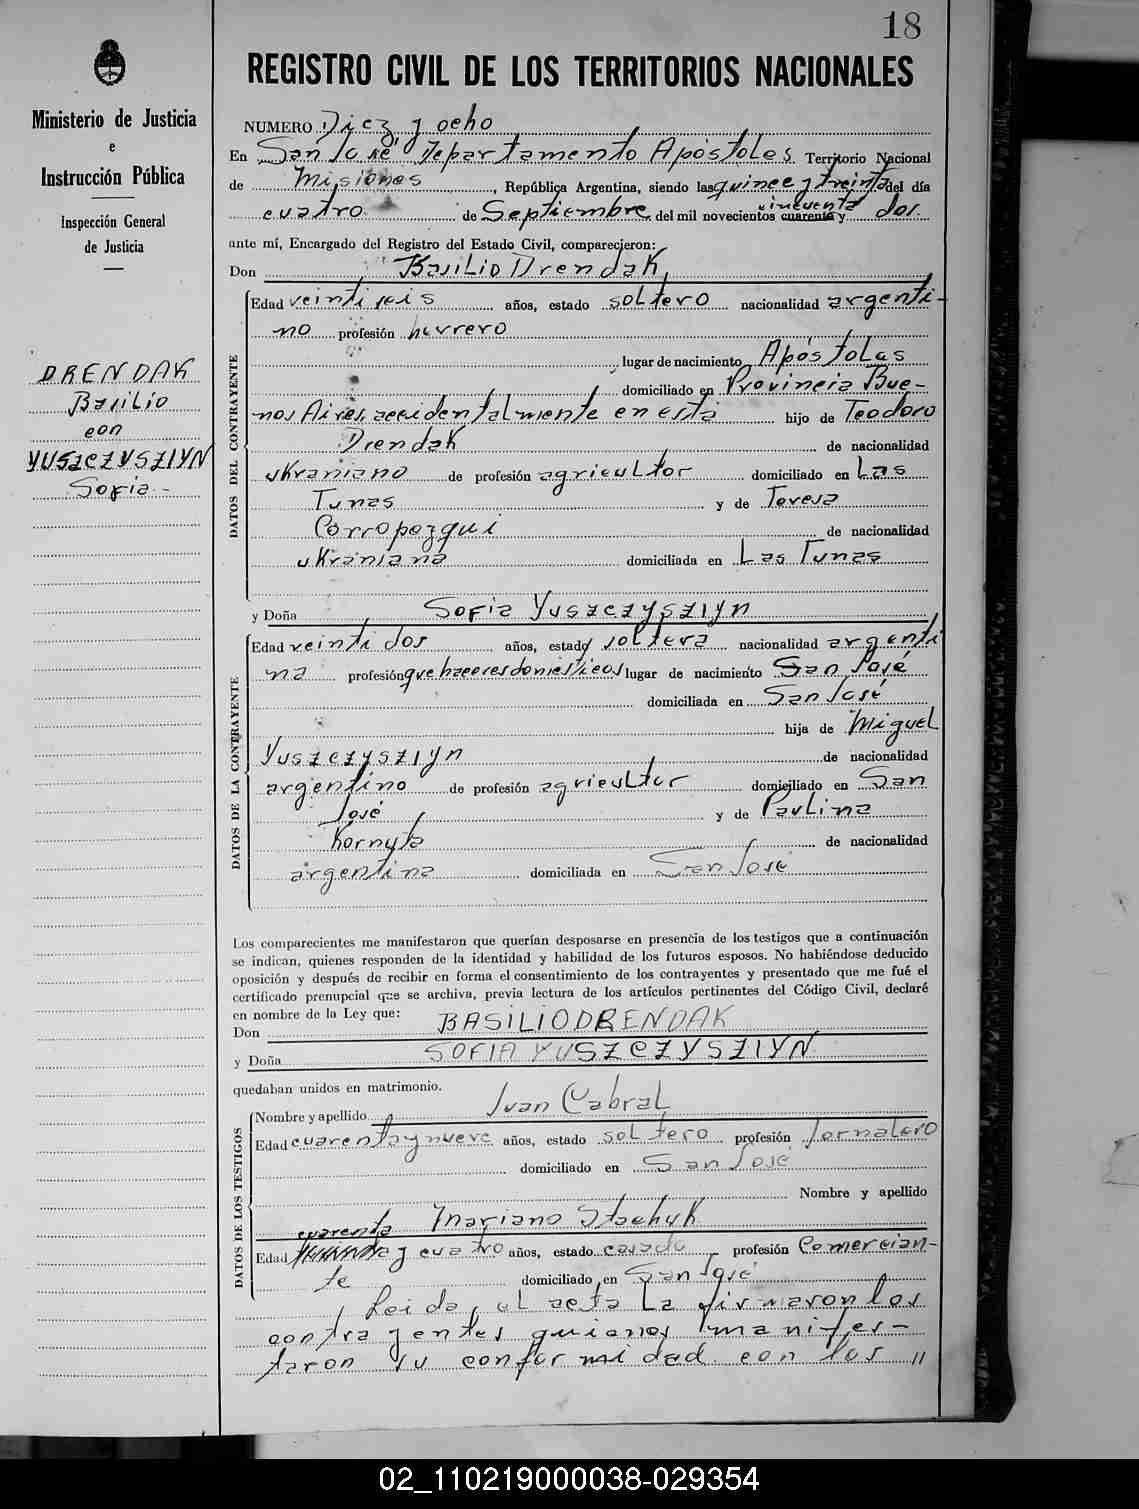 18
REGISTRO CIVIL DE LOS TERRITORIOS NACIONALES
Ministerio de Justicia
e
Instrucción Pública
Inspección General
de Justicia
DRENDAK
Basilio
con
YUSZCZYSZIYN
Sofia
NUMERO Diez y ocho
En San José Departamento Apóstoles Territorio Nacional
de Misiones, República Argentina, siendo las quince y treinta del día
cuatro de Septiembre del mil novecientos cuarenta y cincuenta dos
ante mí, Encargado del Registro del Estado Civil, comparecieron:
Don Basilio Drendak
DATOS DEL CONTRAYENTE
Edad veintiseis años, estado soltero nacionalidad argenti-
no profesión herrero
lugar de nacimiento Apóstoles
domiciliado en Provincia Bue-
nos Aires, accidentalmente en esta hijo de Teodoro
Drendak de nacionalidad
ukraniano de profesión agricultor domiciliado en Las
Tunas y de Teresa
Corropezqui de nacionalidad
ukraniana domiciliada en Las Tunas
y Doña Sofia Yuszczysziyn
DATOS DE LA CONTRAYENTE
Edad veintidos años, estado soltera nacionalidad argenti
na profesión quehaceres domésticos lugar de nacimiento San José
domiciliada en San José
hija de Miguel
Yuszczysziyn de nacionalidad
argentino de profesión agricultor domiciliado en San
José y de Paulina
Kornyta de nacionalidad
argentina domiciliada en San José
Los comparecientes me manifestaron que querían desposarse en presencia de los testigos que a continuación
se indican, quienes responden de la identidad y habilidad de los futuros esposos. No habiéndose deducido
oposición y después de recibir en forma el consentimiento de los contrayentes y presentado que me fué el
certificado prenupcial que se archiva, previa lectura de los artículos pertinentes del Código Civil, declaré
en nombre de la Ley que:
Don BASILIO DRENDAK
y Doña SOFIA YUSZCZYSZIYN
quedaban unidos en matrimonio.
DATOS DE LOS TESTIGOS
Nombre y apellido Juan Cabral
Edad cuarenta y nueve años, estado soltero profesión Jornalero
domiciliado en San José
Nombre y apellido
Mariano Stachuk
Edad cuarenta y cuatro años, estado casado profesión Comercian-
te domiciliado en San José
Leida el acta la firmaron los
contrayentes quienes manifes-
taron su conformidad con los "
02_110219000038-029354